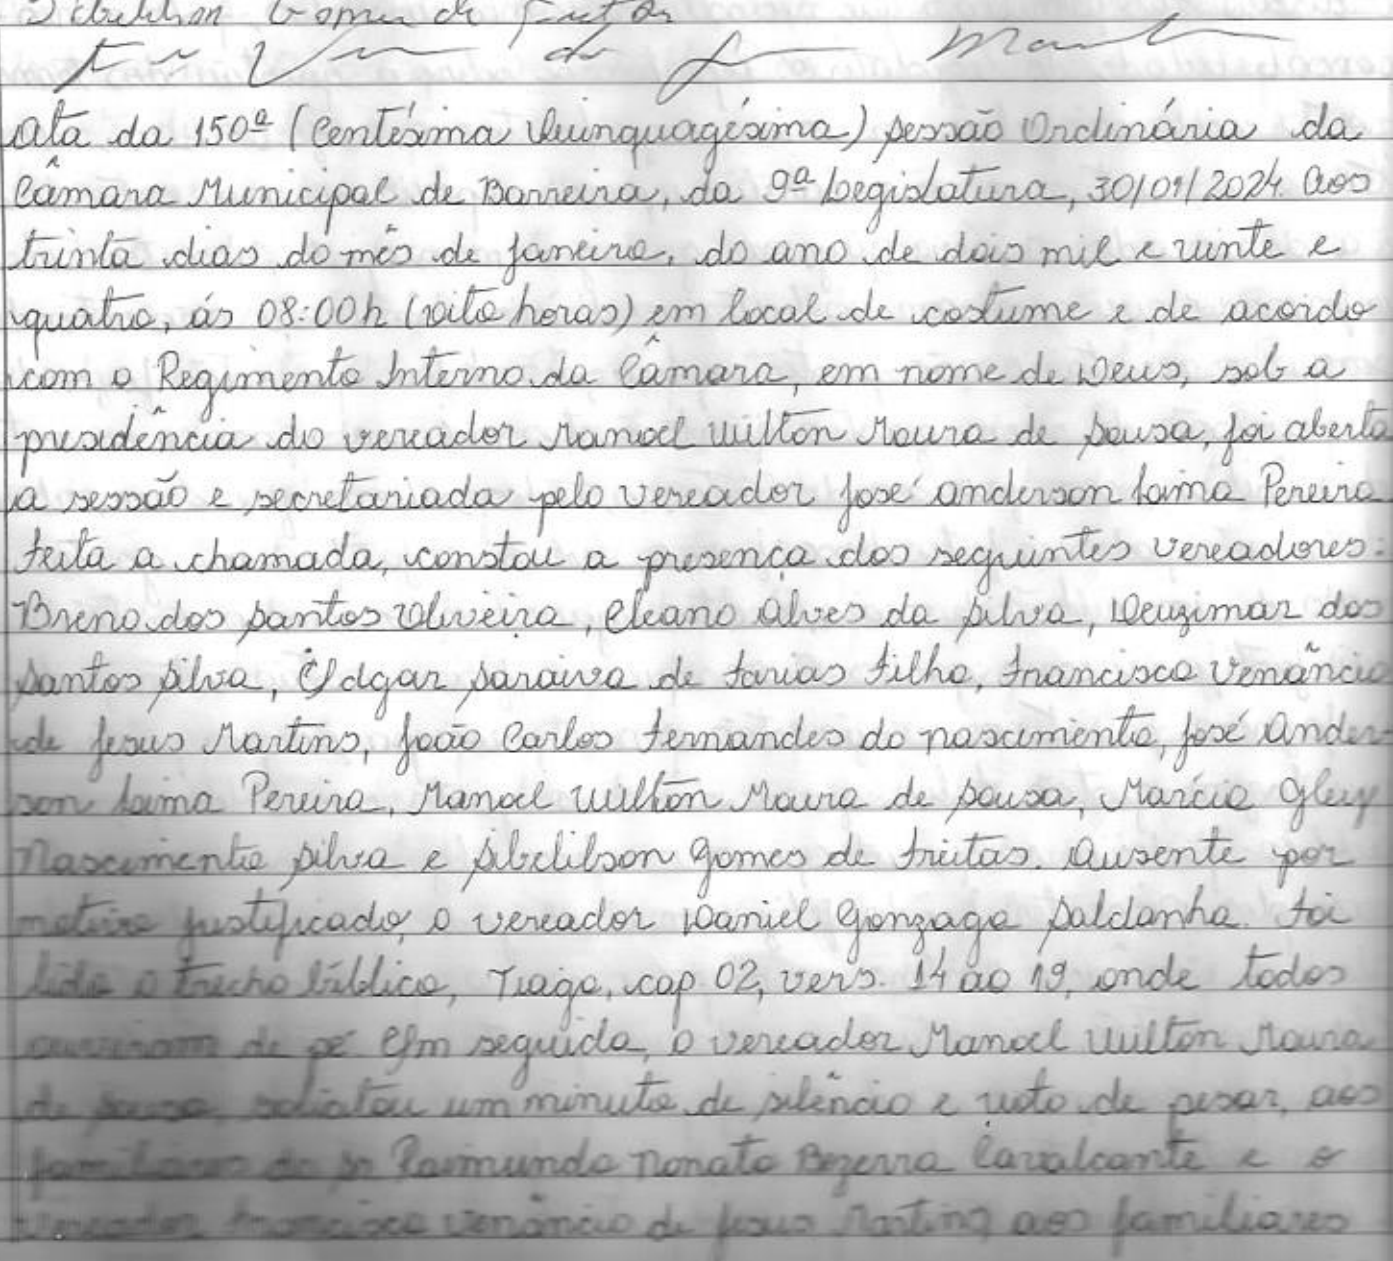 Sibelilson Gomes de Freitas
Ata da 150ª (Centésima Quinquagésima) sessão Ordinária da
Câmara Municipal de Barreira, da 9ª Legislatura, 30/01/2024. Aos
trinta dias do mês de janeiro, do ano de dois mil e vinte e
quatro, ás 08:00h (oito horas) em local de costume e de acordo
com o Regimento Interno da Câmara, em nome de Deus, sob a
presidência do vereador Manoel Uilton Moura de Sousa, foi aberta
a sessão e secretariada pelo vereador José Anderson Laima Pereira
Feita a chamada, constou a presença dos seguintes vereadores:
Breno dos Santos Oliveira, Cleano Alves da Silva, Deuzimar dos
Santos Silva, Edgar Saraiva de Farias Filho, Francisco Venâncio
de Jesus Martins, João Carlos Fernandes do nascimento, José Ander-
son Laima Pereira, Manoel Uilton Moura de Sousa, Márcio Gleuy
Nascimento Silva e Sibelilson Gomes de Freitas. Ausente por
motivo justificado, o vereador Daniel Gonzaga Saldanha. Foi
lido o trecho bíblico, Tiago, cap 02, vers. 14 ao 19, onde todos
ouviram de pé. Em seguida, o vereador Manoel Uilton Moura
de Sousa, solicitou um minuto de silêncio e voto de pesar, aos
familiares do Sr Raimundo Nonato Bezerra Cavalcante e o
Vereador Francisco Venâncio de Jesus Martins, aos familiares